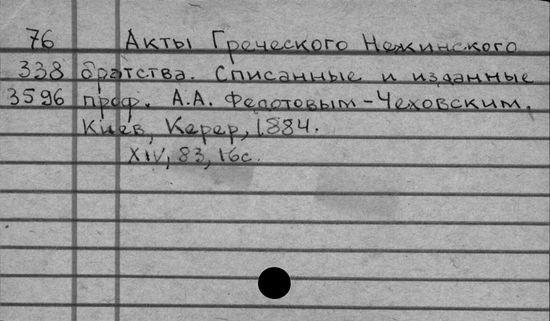 76 Акты Греческого Нежинского
338 братства. Списанные и изданные
3596 проф. А.А. Федотовым-Чеховским.
Киев, Керер, 1884.
XIV, 83, 16с.